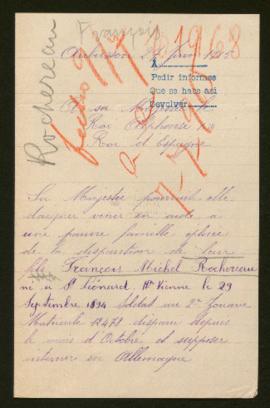 François
Rochereau
Aubusson 22 juin 1915
A
Pedir informes
Que se hace asi
Devolver
A sa Majesté le
Roi Alphonse XIII
Roi d'Espagne
Sa Majesté pourrait elle
daigner venir en aide a
une pauvre famille
de la disparition de leur
fils François Michel Rochereau
né a St Léonard Hte Vienne le 29
Septembre 1894 Soldat au 2e Zouave
Matricule 12471 disparu depuis
le mois d'Octobre et supposer
interner en Allemagne